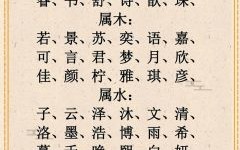 春、书、舒、诗、歆、琛、
属木：
若、景、苏、奕、语、嘉、
可、言、君、梦、月、欣、
佳、颜、柠、雅、琪、彦、
属水：
子、云、泽、沐、文、清、
洛、墨、浩、博、雨、希、